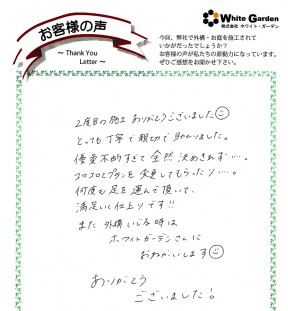 お客様の声
~ Thank You
Letter ~
White Garden
株式会社 ホワイト・ガーデン
今回、弊社で外構・お庭を施工されて
いかがだったでしょうか?
お客様の声が私たちの原動力になっています。
ぜひご感想をお聞かせ下さい。
2度目の施工ありがとうございました
とっても丁寧で親切で助かりました。
優柔不断すぎて全然決めきれず…。
コロコロプランを変更してもらったり…。
何度も足を運んで頂いて、
満足いく仕上りです!!
また外構いじる時は
ホワイトガーデンさんに
おねがいします
ありがとう
ございました!